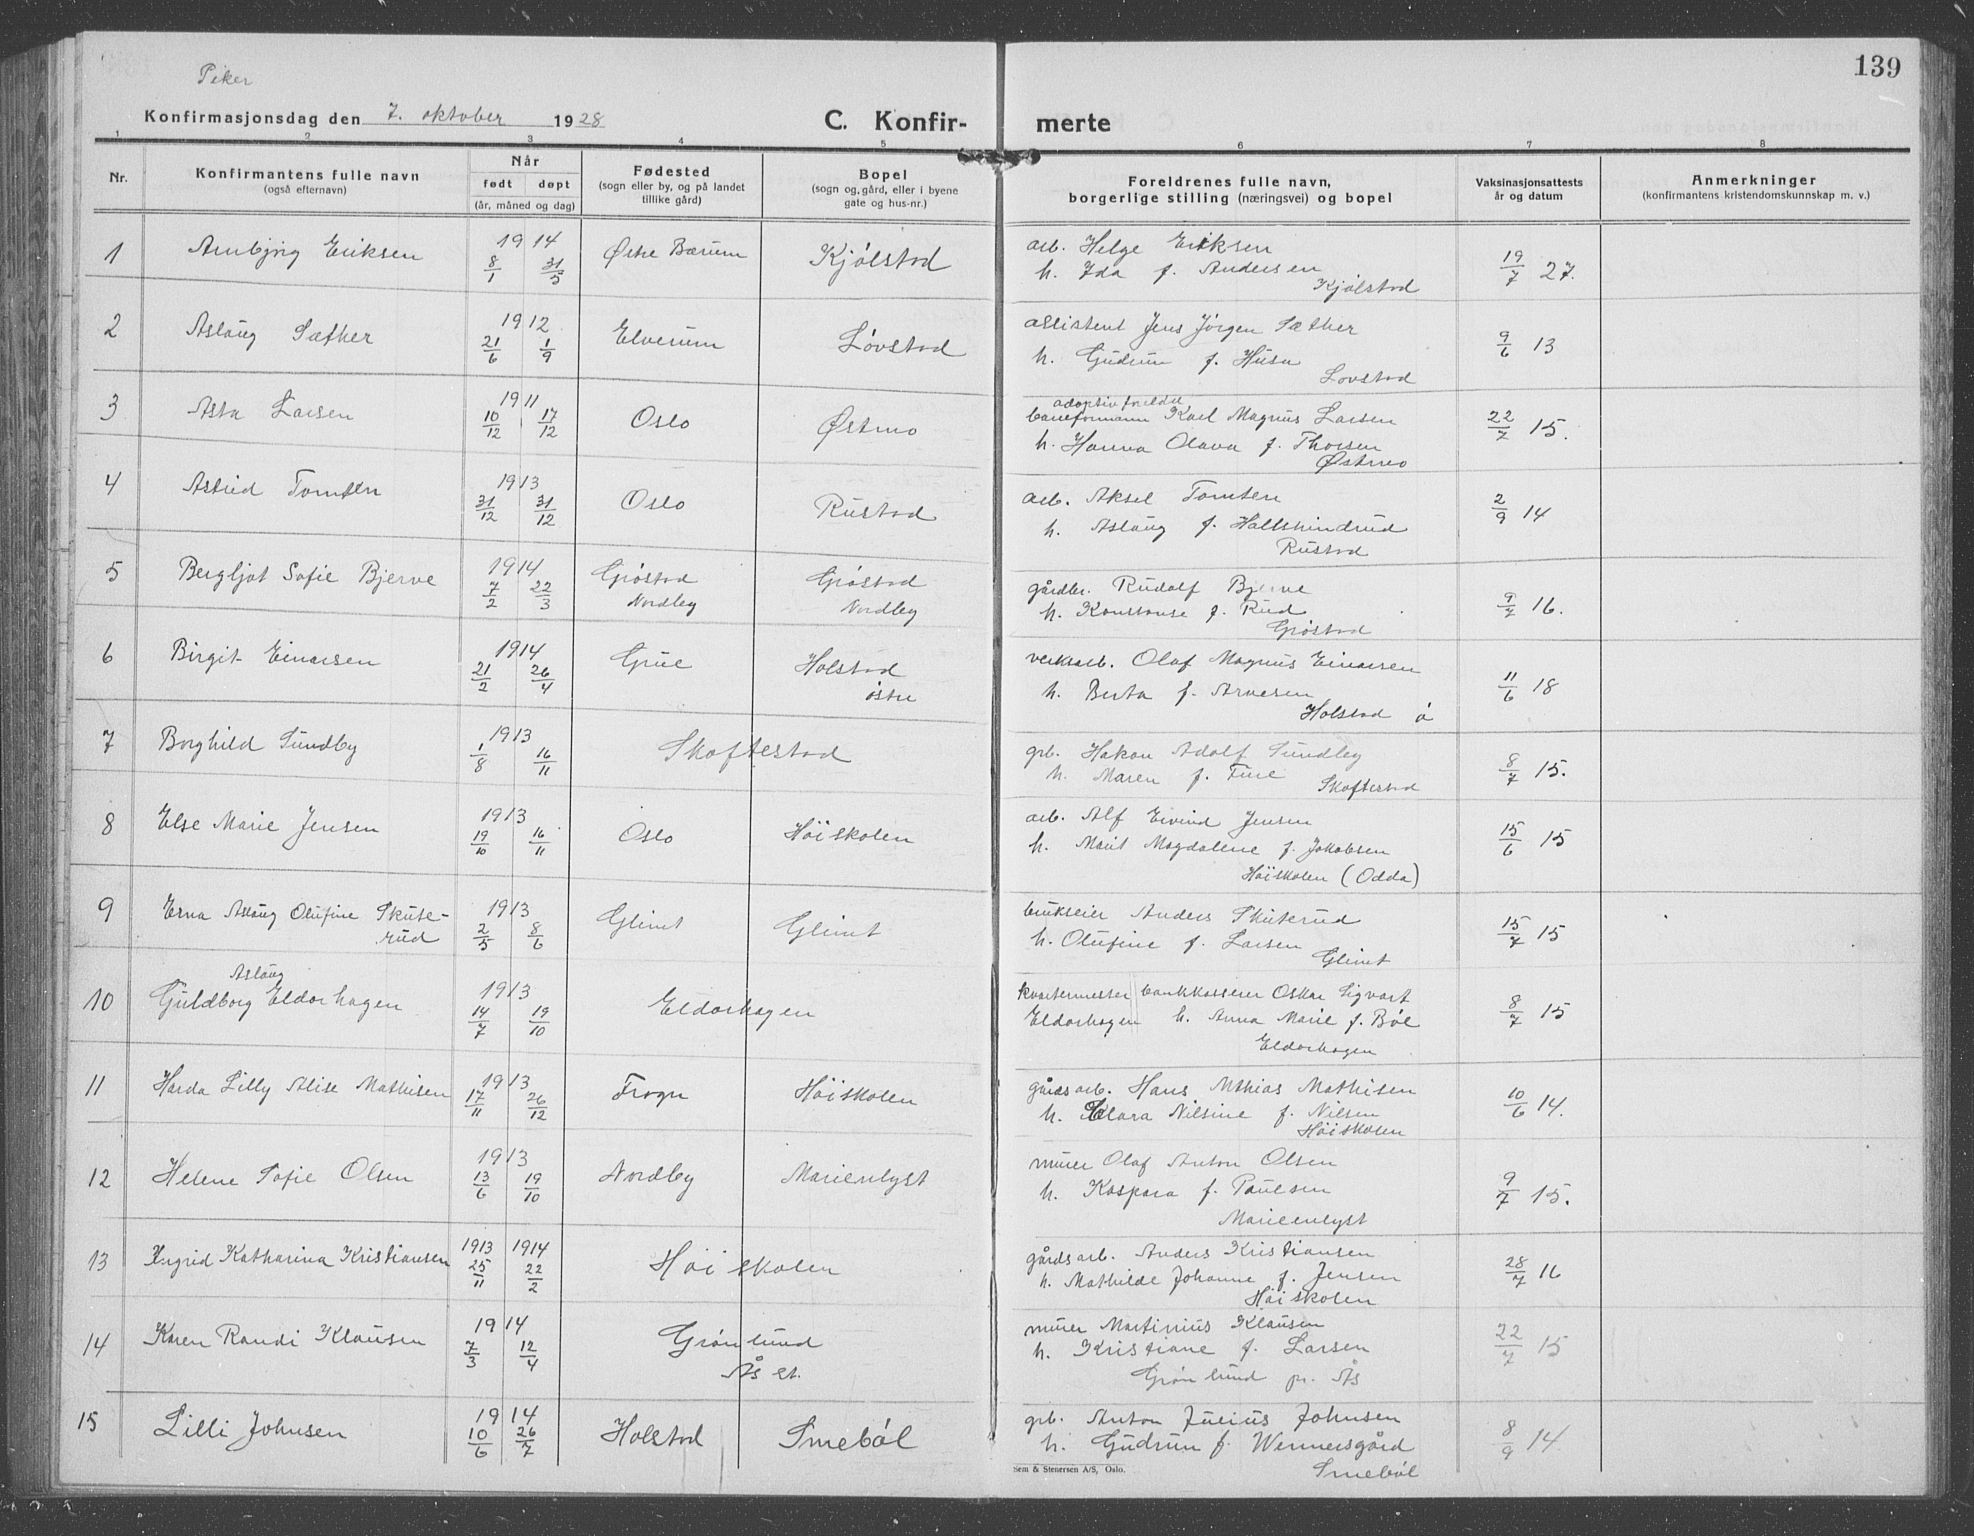 139
Peker
Konfirmasjonsdag den 7. oktober 1928
C. Konfir- merte
1 2 3 4 5 6 7 8
Nr.
Konfirmantens fulle navn
(også efternavn)
Når
født døpt
(år, måned og dag)
Fødested
(sogn eller by, og på landet
tillike gård)
Bopel
(sogn og gård, eller i byene
gate og hus-nr.)
Foreldrenes fulle navn,
borgerlige stilling (næringsvei) og bopel
Vaksinasjonsattests
år og datum
Anmerkninger
(konfirmantens kristendomskunnskap m. v.)
1 Arnbjørg Eriksen 1914 8/1 31/5 Østre Bærum Kjølstad
arb. Helge Eriksen
h. Ida f. Andersen
Kjølstad
19/7 27.
2 Aslaug Sæther 1912 21/6 1/9 Elverum Løvstad
assistent Jens Jørgen Sæther
h. Gudrun f. Huse
Løvstad
9/6 13
3 Asta Larsen 1911 10/12 17/12 Oslo Østmo
adoptivforeldre
baneformann Karl Magnus Larsen
h. Hanna Olava f. Thorsen
Østmo
22/7 15.
4 Astrid Tomten 1913 31/12 31/12 Oslo Rustad
arb. Aksel Tomten
h. Aslaug f. Hallskindrud
Rustad
2/9 14
5 Bergljot Sofie Bjerve 1914 7/2 22/3 Grøstad Nordby Grøstad Nordby
gårdbr. Rudolf Bjerve
h. Konstanse f. Rud
Grøstad
9/7 16.
6 Birgit Einarsen 1914 21/2 26/4 Grue Holstad østre
verksarb. Olaf Magnus Einarsen
h. Berta f. Arnesen
Holstad ø
11/6 18
7 Borghild Sundby 1913 1/8 16/11 Skoftestad
grb. Hakon Adolf Sundby
h. Maren f. Ture
Skoftestad
8/7 15.
8 Else Marie Jensen 1913 19/10 16/11 Oslo Høiskolen
arb. Alf Eivind Jensen
h. Marit Magdalene f. Jakobsen
Høiskolen (Odda)
15/6 15
9 Erna Aslaug Olufine Skute-
rud 1913 2/5 8/6 Glimt Glimt
brukseier Anders Skuterud
h. Olufine f. Larsen
Glimt
15/7 15
Aslaug
10 Guldborg Eldorhagen 1913 14/7 19/10 Eldorhagen
kvartermester bankkasserer Oskar Sigvart
Eldorhagen h. Anna Marie f. Bøe
Eldorhagen
8/7 15
11 Harda Lilly Alise Mathisen 1913 17/11 26/12 Frogn Høiskolen
gårdsarb. Hans Mthias Mathisen
h. Klara Nilsine f. Nilsen
Høiskolen
10/6 14.
12 Helene Sofie Olsen 1913 13/6 19/10 Nordby Marienlyst
murer Olaf Anton Olsen
h. Kaspara f. Paulsen
Marieenlyst
9/7 15.
13 Ingrid Katharina Kristiansen 1913 1914 25/11 22/2 Høiskolen
gårdsarb. Anders Kristiansen
h. Mathilde Johanne f. Jensen
Høiskolen
28/7 16
14 Karen Randi Klausen 1914 7/3 12/4 Grønlund
Ås st.
murer Martinius Klausen
h. Kristiane f. Larsen
Grønlund pr. Ås
22/7 15
15 Lilli Johnsen 1914 10/6 26/7 Holstad Smebøl
grb. Anton Julius Johnsen
h. Gudrun f. Wennersgård
Smebøl
8/9 14
Sem & Stenersen A/S, Oslo.